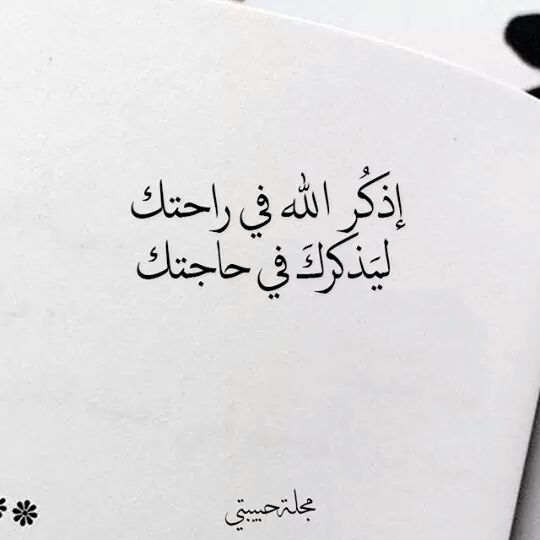 إذكُرِ الله في راحتك
ليَذكركَ في حاجتك
مجلة حبيبتي